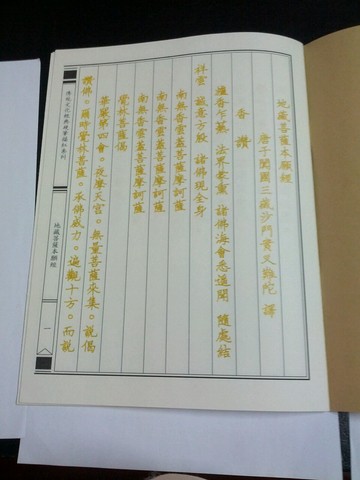 地藏菩薩本願經
唐于闐國三藏沙門實叉難陀 譯
香讚
爐香乍熱 法界蒙熏 諸佛海會悉遙聞 隨處結
祥雲 誠意方殷 諸佛現全身
南無香雲蓋菩薩摩訶薩
南無香雲蓋菩薩摩訶薩
南無香雲蓋菩薩摩訶薩
覺林菩薩偈
華嚴第四會。夜摩天宮。無量菩薩來集。說偈
讚佛。爾時覺林菩薩。承佛威力。遍觀十方。而說
地藏菩薩本願經
一